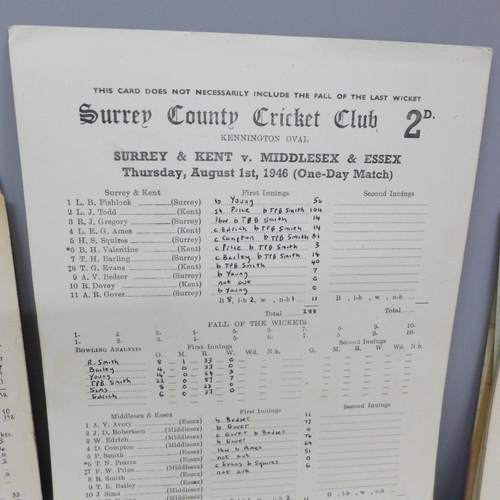 THIS CARD DOES NOT NECESSARILY INCLUDE THE FALL OF THE LAST WICKET
Surrey County Cricket Club 2D.
KENNINGTON OVAL
SURREY & KENT v. MIDDLESEX & ESSEX
Thursday, August 1st, 1946 (One-Day Match)
Surrey & Kent First Innings Second Innings
1 L. B. Fishlock (Surrey) b Young 56
2 L. J. Todd (Kent) st Price b TPB Smith 104
3 R. J. Gregory (Surrey) lbw b TPB Smith 14
4 L. E. G. Ames (Kent) c Edrich b TPB Smith 14
5 H. S. Squires (Surrey) c Compton b TPB Smith 31
*6 B. H. Valentine (Kent) c Price b TPB Smith 3
7 T. H. Barling (Surrey) c Bailey b TPB Smith 14
‡8 T. G. Evans (Kent) b TPB Smith 40
9 A. V. Bedser (Surrey) b Young 7
10 R. Dovey (Kent) not out 0
11 A. R. Gover (Surrey) b Young 0
B 8, l-b 2, w , n-b 1 11 B , l-b , w , n-b
Total 288 Total
FALL OF THE WICKETS
1- 2- 3- 4- 5- 6- 7- 8- 9- 10-
1- 2- 3- 4- 5- 6- 7- 8- 9- 10-
First Innings Second Innings
BOWLING ANALYSIS O. M. R. W. Wd. N.b. O. M. R. W. Wd. N.b.
R. Smith 8 1 33 0
Bailey 4 0 23 0
Young 14 0 64 3
TPB Smith 22 0 87 7
Sims 8 0 23 0
Edrich 6 0 37 0
Middlesex & Essex First Innings Second Innings
1 A. V. Avery (Essex) b Bedser 11
2 J. D. Robertson (Middlesex) b Gover 77
3 W. Edrich (Middlesex) c Gover b Bedser 0
4 D. Compton (Middlesex) b Gover 76
5 F. Smith (Essex) lbw b Ames 64
*6 T. N. Pearce (Essex) not out 51
‡7 F. W. Price (Middlesex) c Evans b Squires 0
8 R. Smith (Essex) not out 6
9 T. E. Bailey (Essex)
10 J Sims (Middlesex)